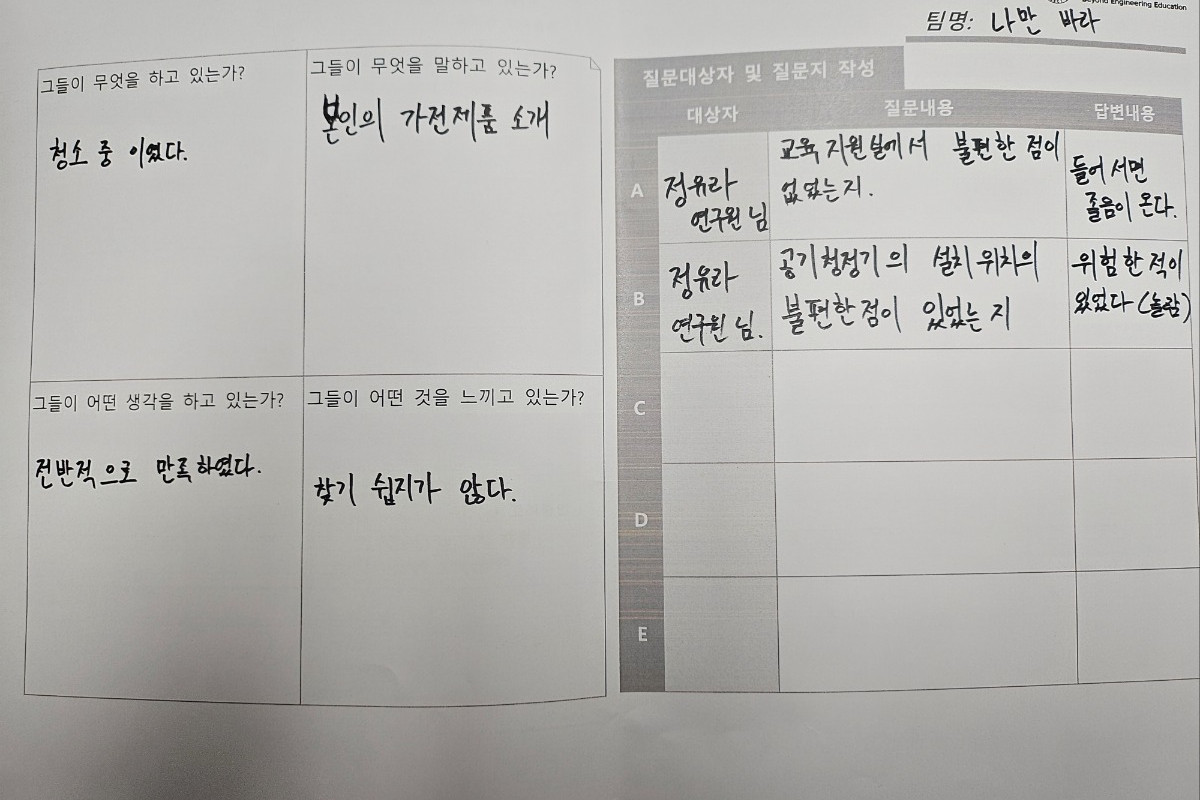 Beyond Engineering Education
팀명: 나만 바라
그들이 무엇을 하고 있는가?
청소 중 이였다.
그들이 무엇을 말하고 있는가?
본인의 가전제품 소개
그들이 어떤 생각을 하고 있는가?
전반적으로 만족하였다.
그들이 어떤 것을 느끼고 있는가?
찾기 쉽지가 않다.
질문대상자 및 질문지 작성
대상자 질문내용 답변내용
A
정유라
연구원 님
교육 지원실에서 불편한 점이
없었는지.
들어 서면
졸음이 온다.
B
정유라
연구원 님.
공기청정기의 설치 위치의
불편한 점이 있었는지
위험한 적이
있었다 (놀람)
C
D
E